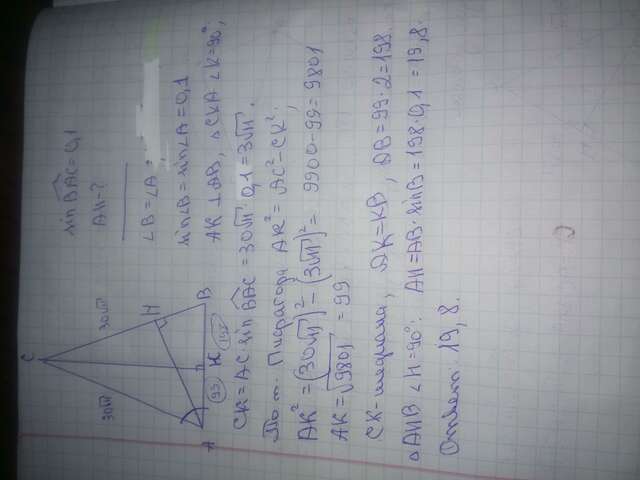 sin BAC = 0,1
AH - ?
∠B = ∠A
sin∠B = sin∠A = 0,1
AK ⊥ AB, △CKA ∠K = 90°;
C
30√11
30√11
H
A
99
K
B
CK = AC · sin BAC = 30√11 · 0,1 = 3√11.
По т. Пифагора AK² = AC² - CK²;
AK² = (30√11)² - (3√11)² = 9900 - 99 = 9801
AK = √9801 = 99
CK - медиана, AK = KB, AB = 99 · 2 = 198.
△AHB ∠H = 90°: AH = AB · sin B = 198 · 0,1 = 19,8.
Ответ: 19,8.